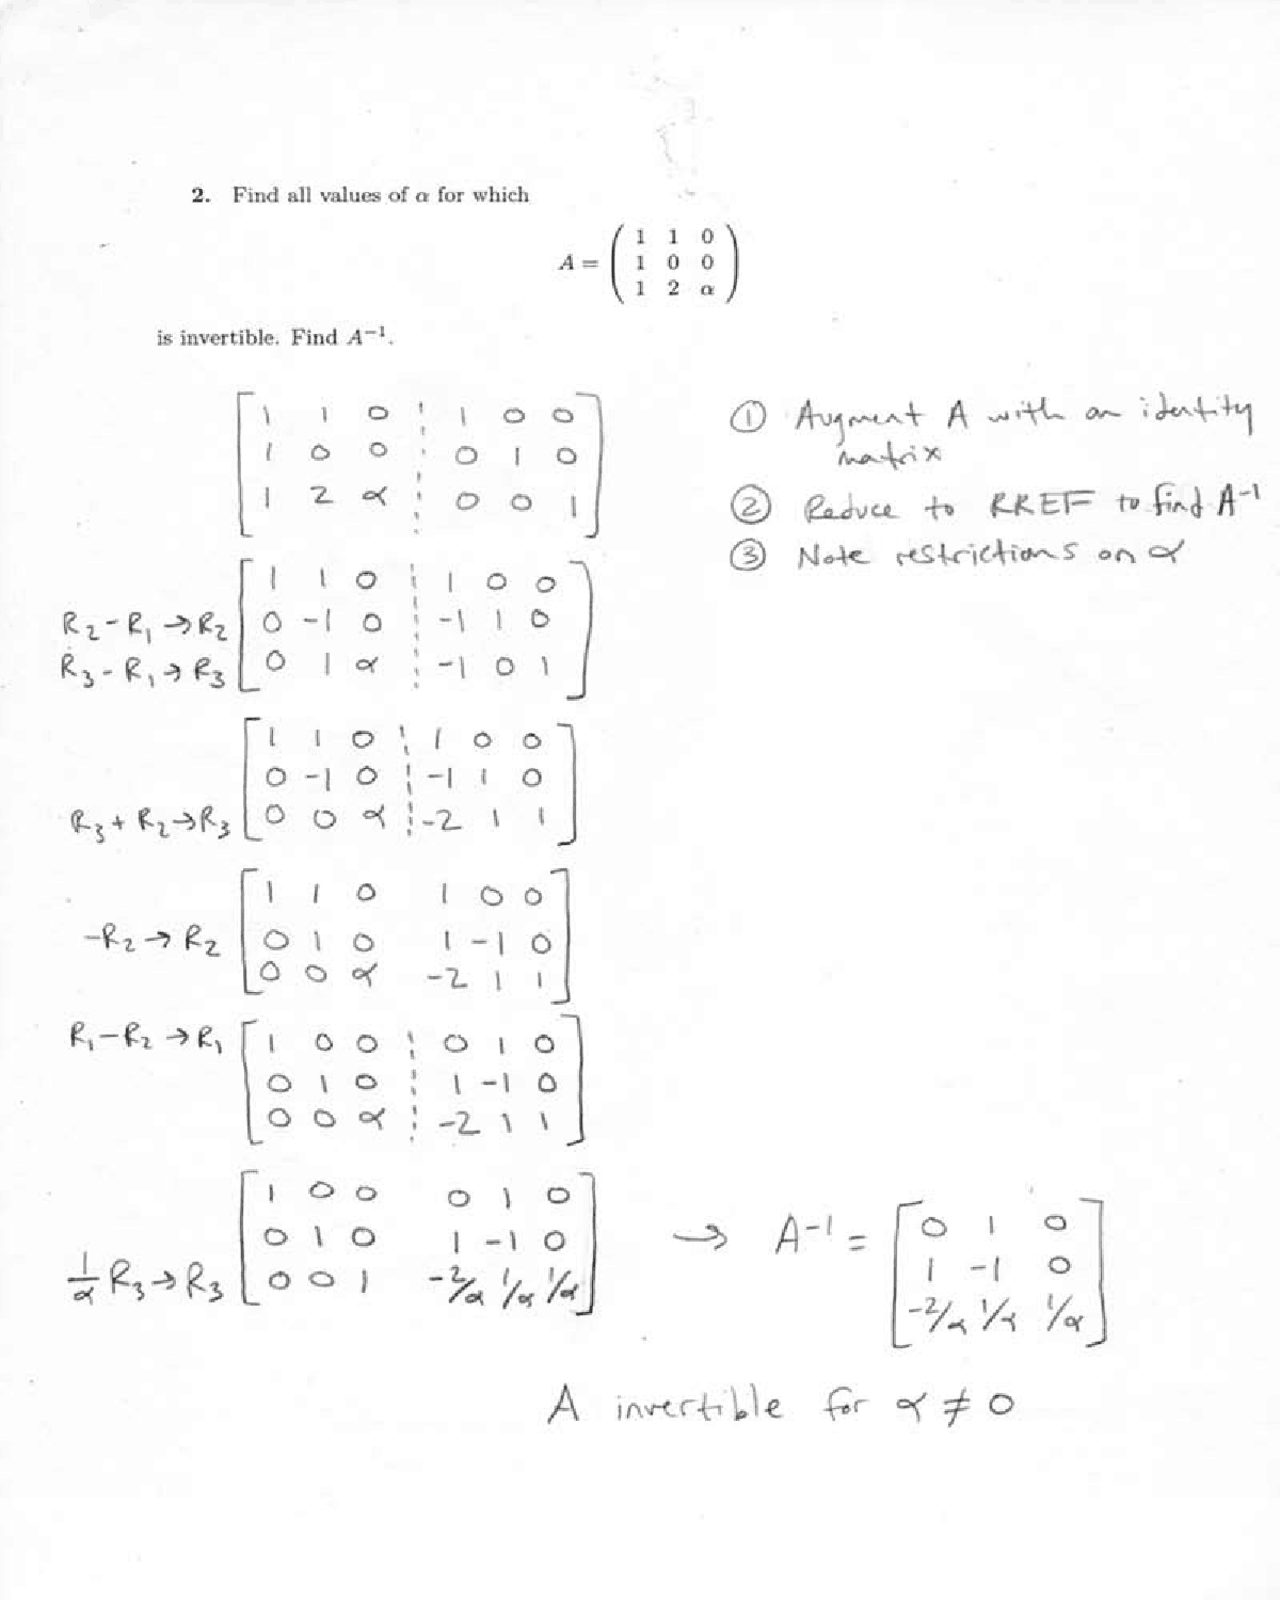 2. Find all values of α for which
A = ( 1 1 0
1 0 0
1 2 α )
is invertible. Find A⁻¹.
[ 1 1 0 ¦ 1 0 0
1 0 0 ¦ 0 1 0
1 2 α ¦ 0 0 1 ]
① Augment A with an identity
matrix
② Reduce to RREF to find A⁻¹
③ Note restrictions on α
[ 1 1 0 ¦ 1 0 0
R₂ - R₁ → R₂ 0 -1 0 ¦ -1 1 0
R₃ - R₁ → R₃ 0 1 α ¦ -1 0 1 ]
[ 1 1 0 ¦ 1 0 0
0 -1 0 ¦ -1 1 0
R₃ + R₂ → R₃ 0 0 α ¦ -2 1 1 ]
[ 1 1 0 1 0 0
-R₂ → R₂ 0 1 0 1 -1 0
0 0 α -2 1 1 ]
R₁ - R₂ → R₁ [ 1 0 0 ¦ 0 1 0
0 1 0 ¦ 1 -1 0
0 0 α ¦ -2 1 1 ]
[ 1 0 0 0 1 0
0 1 0 1 -1 0
1/α R₃ → R₃ 0 0 1 -2/α 1/α 1/α ]
→ A⁻¹ = [ 0 1 0
1 -1 0
-2/α 1/α 1/α ]
A invertible for α ≠ 0